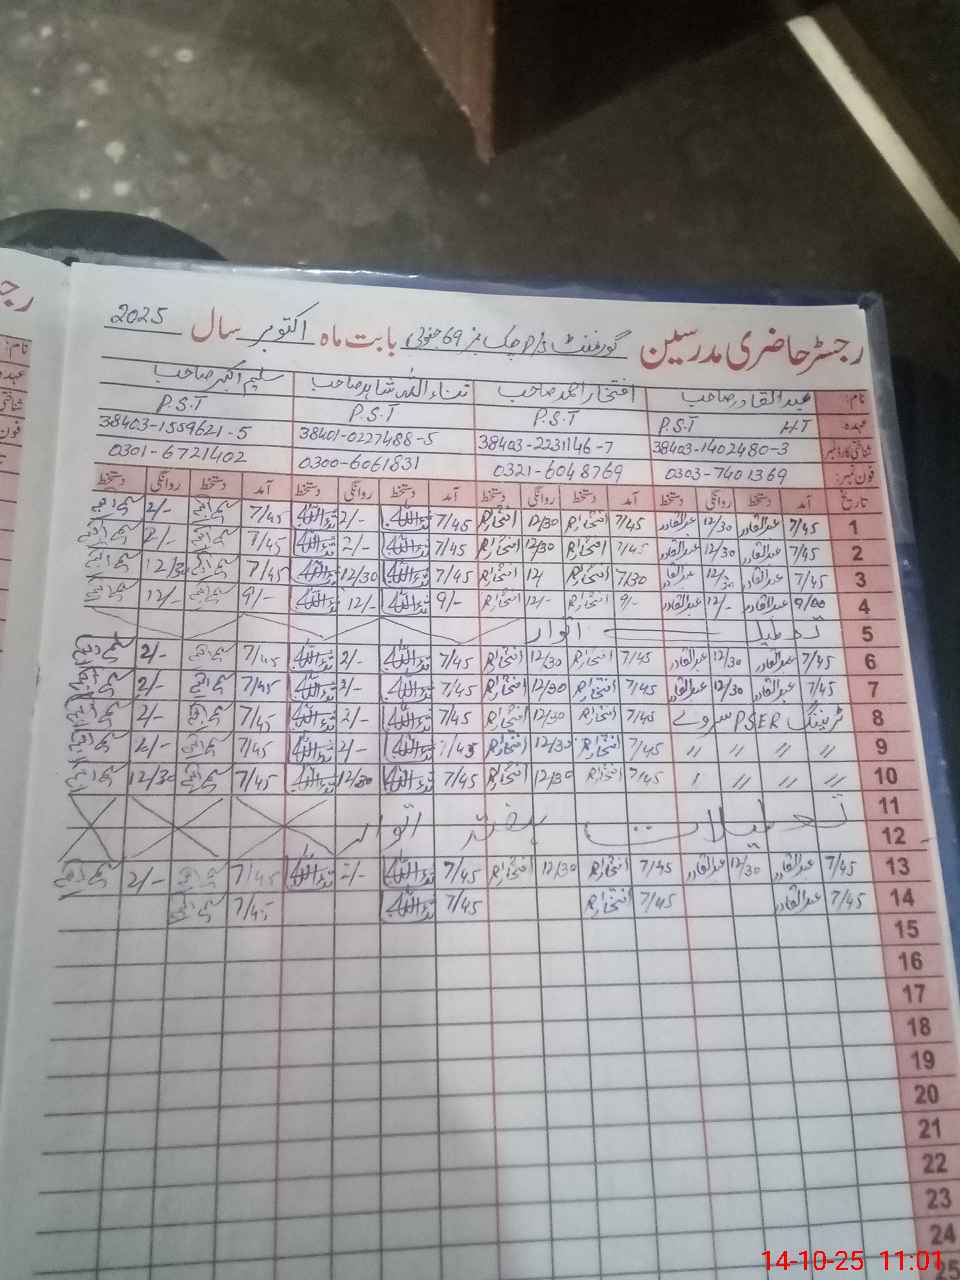 رجسٹر حاضری مدرسین گورنمنٹ P/S چک نمبر 69 جنوبی بابت ماہ اکتوبر سال 2025
نام: عبدالقادر صاحب افتخار احمد صاحب ثناء اللہ شاہد صاحب سلیم اکبر صاحب
عہدہ: H/T P.S.T P.S.T P.S.T P.S.T
شناختی کارڈ نمبر 38403-1402480-3 38403-2231146-7 38401-0227488-5 38403-1559621-5
فون نمبر: 0303-7401369 0321-6048769 0300-6061831 0301-6721402
تاریخ آمد دستخط روانگی دستخط آمد دستخط روانگی دستخط آمد دستخط روانگی دستخط آمد دستخط روانگی دستخط
1 7/45 عبدالقادر 12/30 عبدالقادر 7/45 افتخار 12/30 افتخار 7/45 2/- 7/45 2/-
2 7/45 عبدالقادر 12/30 عبدالقادر 7/45 افتخار 12/30 افتخار 7/45 2/- 7/45 2/-
3 7/45 عبدالقادر 12/30 عبدالقادر 7/30 افتخار 12 افتخار 7/45 12/30 7/45 12/30
4 9/00 عبدالقادر 12/- عبدالقادر 9/- افتخار 12/- افتخار 9/- 12/- 9/- 12/-
5 تعطیل اتوار
6 7/45 عبدالقادر 12/30 عبدالقادر 7/45 افتخار 12/30 افتخار 7/45 2/- 7/45 2/-
7 7/45 عبدالقادر 12/30 عبدالقادر 7/45 افتخار 12/30 افتخار 7/45 2/- 7/45 2/-
8 ٹریننگ PSER سروے 7/45 افتخار 12/30 افتخار 7/45 2/- 7/45 2/-
9 〃 〃 〃 〃 7/45 افتخار 12/30 افتخار 7/45 2/- 7/45 2/-
10 〃 〃 〃 7/45 افتخار 12/30 افتخار 7/45 12/30 7/45 12/30
11
12 تعطیلات ہفتہ اتوار
13 7/45 عبدالقادر 12/30 عبدالقادر 7/45 افتخار 12/30 افتخار 7/45 2/- 7/45 2/-
14 7/45 عبدالقادر 7/45 افتخار 7/45 7/45
15
16
17
18
19
20
21
22
23
24
25
رجـ
نام:
عہدہ
شناختی
فون
14-10-25 11:01